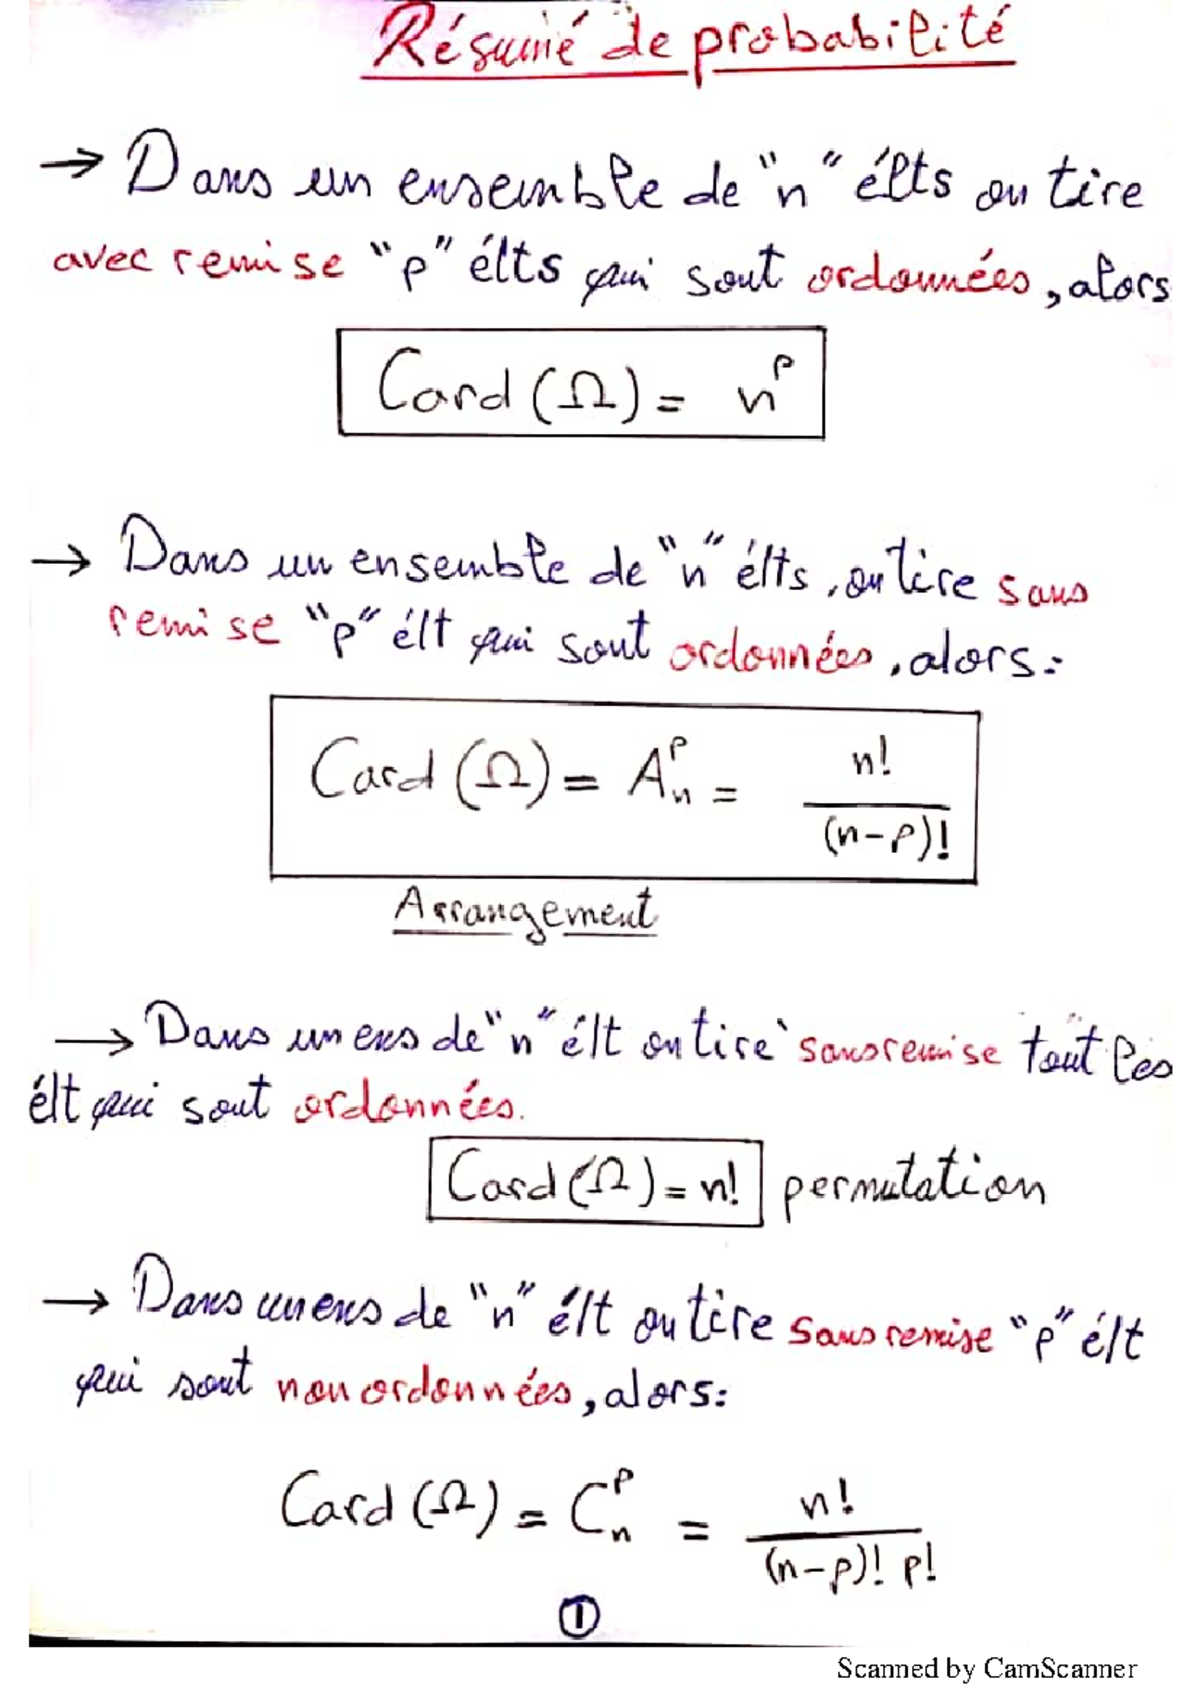 Résumé de probabilité
→ Dans un ensemble de "n" élts on tire
avec remise "p" élts qui sont ordonnées, alors
Card (Ω) = n^p
→ Dans un ensemble de "n" élts, on tire sans
remise "p" élt qui sont ordonnées, alors:
Card (Ω) = A_n^p = n! / (n-p)!
Arrangement
→ Dans un ens de "n" élt on tire sans remise tout les
élt qui sont ordonnées.
Card (Ω) = n! permutation
→ Dans un ens de "n" élt on tire sans remise "p" élt
qui sont non ordonnées, alors:
Card (Ω) = C_n^p = n! / (n-p)! p!
1
Scanned by CamScanner